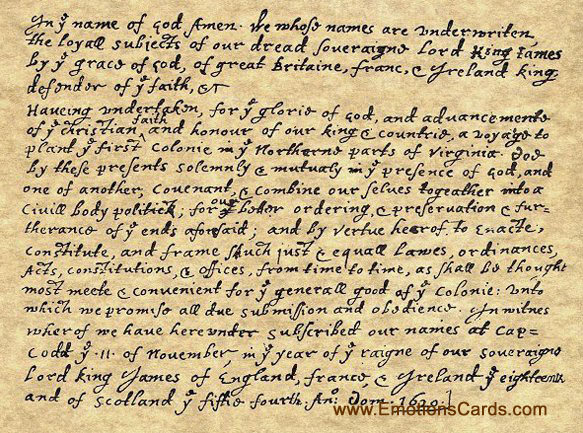 In yͤ name of god Amen. We whose names are underwriten,
the loyall subjects of our dread soveraigne Lord King James
by yͤ grace of God, of great Britaine, franc, & Ireland king,
defender of yͤ faith, &c
Haveing undertaken, for yͤ glorie of God, and advancemente
of yͤ christian faith and honour of our king & countrie, a voyage to
plant yͤ first colonie in yͤ Northerne parts of Virginia. doe
by these presents solemnly & mutualy in yͤ presence of God, and
one of another, covenant, & combine our selves togeather into a
Civill body politick; for our better ordering, & preservation & fur=
therance of yͤ ends aforesaid; and by vertue hearof, to enacte,
constitute, and frame such just & equall Lawes, ordinances,
Acts, constitutions, & offices, from time to time, as shall be thought
most meete & convenient for yͤ generall good of yͤ Colonie: unto
which we promise all due submission and obedience. In witnes
wherof we have hereunder subscribed our names at Cap=
Codd yͤ .11. of November, in yͤ year of yͤ raigne of our soveraigne
Lord king James of England, france, & Ireland yͤ eighteenth
and of Scotland yͤ fiftie fourth. Anͦ: Dom. 1620.]
www.EmotionsCards.com